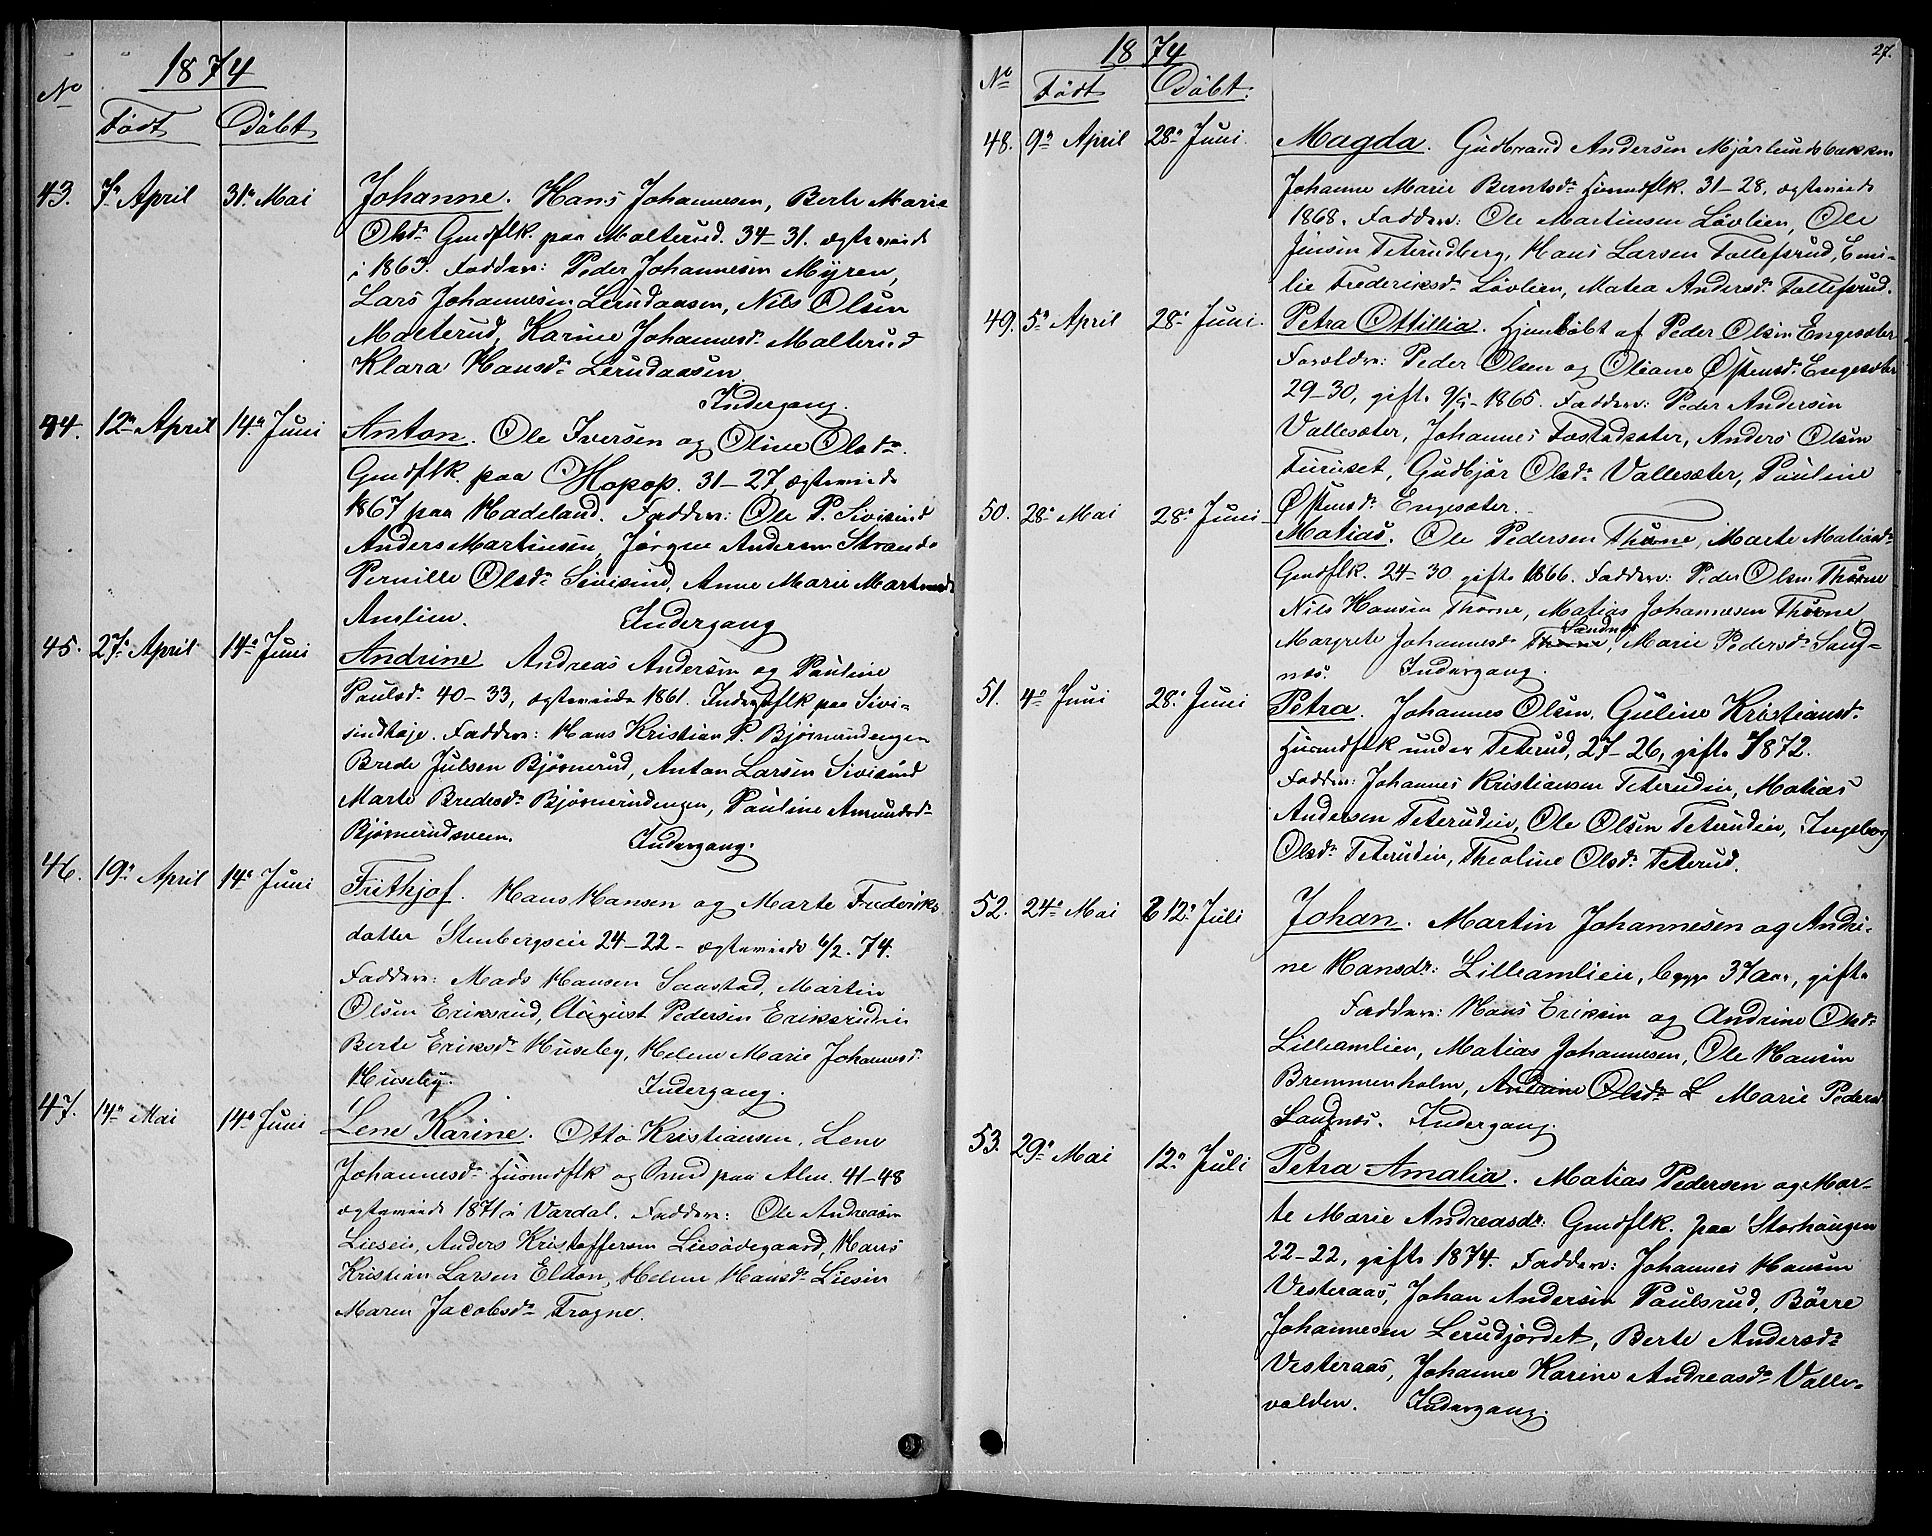 1874
No
Født Døbt
43. 7de April 31te Mai Johanne. Hans Johannesen, Berte Marie
Olsdr Gmdflk. paa Malterud. 34-31. ægteviede
i 1863. Faddere: Peder Johannesen Myren,
Lars Johannesen Lerudaasen, Nils Olsen
Malterud, Karine Johannesdr Malterud
Klara Hansdr Lerudaasen
Indergang.
44. 12te April 14de Juni Anton. Ole Iversen og Oline Olsdr
Gmdflk. paa Hopop. 31-27 ægteviede
1867 paa Hadeland. Faddere: Ole P. Sivisind
Anders Martinsen, Jørgen Andersen Strande
Pernille Olsdr Sivisind, Anne Marie Martinsdr
Amlien. Indergang
45. 27de April 14de Juni Andrine Andreas Andersen og Pauline
Paulsdr 40-33, ægteviede 1861. Inderstflk paa Sivi-
sindhøje. Faddere: Hans Kristian P. Bjørnerudengen
Brede Julsen Bjørnerud, Anton Larsen Sivisind
Marte Bredesdr Bjørnerudengen, Pauline Amundsdr
Bjørnerudsveen. Indergang.
46. 19de April 14de Juni Frithjof. Hans Hansen og Marte Frederiks
datter Stenbergseie 24-22- ægteviede 6/2. 74.
Faddere: Mads Hansen Saastad, Martin
Olsen Eriksrud, August Pedersen Eriksrudeie
Berte Eriksdr Huseby, Helene Marie Johannesdr
Huseby. Indergang.
47. 14de Mai 14de Juni Lene Karine. Otto Kristiansen, Lene
Johannesdr Husmdflk og Smed paa Alm. 41-48
ægteviede 1871 i Vardal. Faddere: Ole Andreasen
Lieseie, Anders Kristoffersen Liesødegaard, Hans
Kristian Larsen Elton, Helene Hansdr Liesen
Maren Jacobsdr Frogne.
27.
1874
No
Født Døbt.
48. 9de April 28de Juni. Magda. Gudbrand Andersen Mjørlundsbakken
Johanne Marie Berntsdr Husmdflk. 31-28, ægteviede
1868. Faddere: Ole Martinsen Løvlien, Ole
Jensen Teterudberg, Hans Larsen Tollefsrud, Emi-
lie Frederiksdr Løvlien, Matea Andersdr Tollefsrud.
49. 5te April 28de Juni. Petra Ottillia. Hjemdøbt af Peder Olsen Engesæter
Forældre: Peder Olsen og Oliane Østensdr Engesæter
29-30, gift. 9/5-1865. Faddere: Peder Andersen
Vallesæter, Johannes Fostadsæter, Anders Olsen
Furuset, Gudbjør Olsdr Vallesæter, Pauline
Østensdr Engesæter.
50. 28de Mai 28de Juni Matias. Ole Pedersen Thorne, Marte Matiasdr
Gmdflk. 24-30 gifte 1866. Faddere: Peder Olsen Thorne
Nils Hansen Thorne, Matias Johannesen Thorne
Sandnes
Margrete Johannesdr Thorne, Marie Pedersdr Sang-
næs. Indergang.
51. 4de Juni 28de Juni Petra. Johannes Olsen, Guline Kristiansdr
Husmdflk under Teterud, 27-26, gifte 1872.
Faddere: Johannes Kristiansen Teterudeie, Matias
Andersen Teterudeie, Ole Olsen Teterudeie, Ingeborg
Olsdr Teterudeie, Theoline Olsdr Teterud.
52. 24de Mai 12te Juli Johan. Martin Johannesen og Andri-
ne Hansdr: Lilleamlieie, begge 37 Aar, gifte
Faddere: Hans Eriksen og Andrine Olsdr
Lilleamlien, Matias Johannesen, Ole Hansen
Bremmenholm, Andrine Olsdr L Marie Pedersdr
Sangnæs. Indergang.
53. 29de Mai 12te Juli Petra Amalia. Matias Pedersen og Mar-
te Marie Andreasdr: Gmdflk. paa Storhaugen
22-22, gifte 1874. Faddere: Johannes Hansen
Vesteraas, Johan Andersen Paulsrud, Børre
Johannesen Lerudjordet, Berte Andersdr
Vesteraas, Johanne Karine Andreasdr Valle-
volden. Indergang.